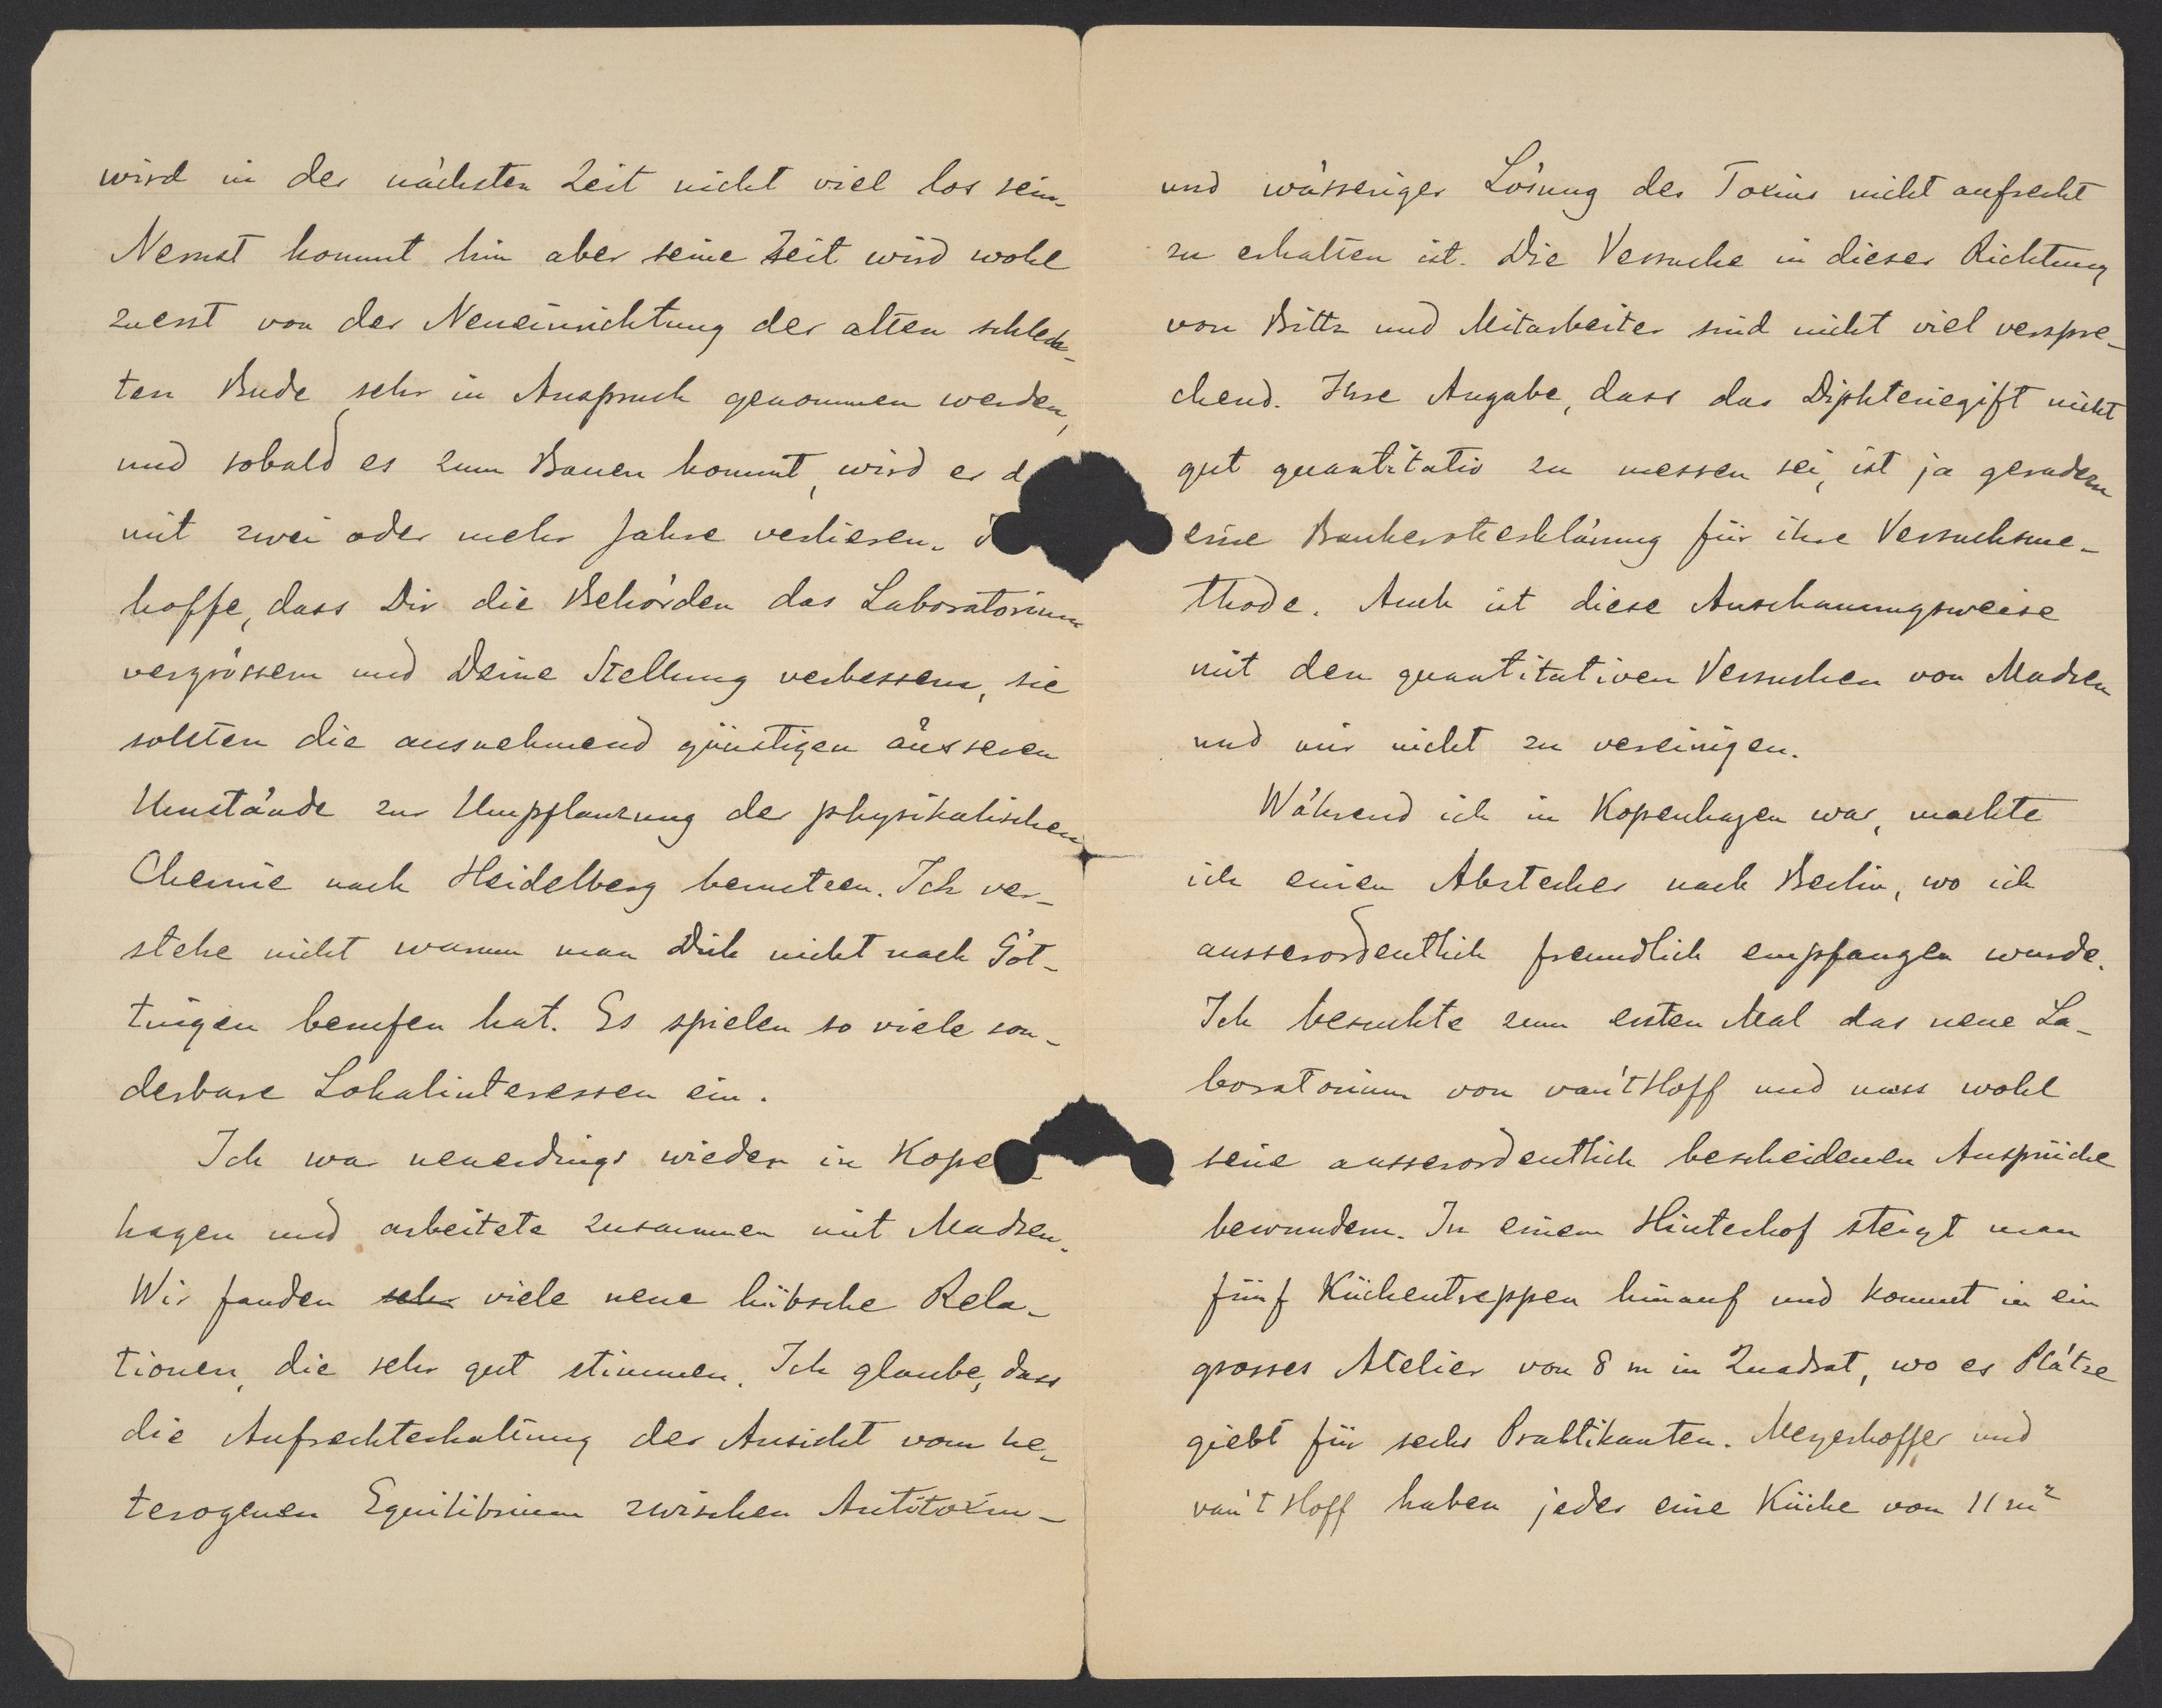 wird in der nächsten Zeit nicht viel los sein.
Nernst kommt hin aber seine Zeit wird wohl
zuerst von der Neueinrichtung der alten schlech-
ten Bude sehr in Anspruch genommen werden,
und sobald es zum Bauen kommt, wird er d
mit zwei oder mehr Jahre verlieren.
hoffe, dass Dir die Behörden das Laboratorium
vergrössern und Deine Stellung verbessern, sie
sollten die ausnehmend günstigen äusseren
Umstände zur Umpflanzung der physikalischen
Chemie nach Heidelberg benutzen. Ich ver-
stehe nicht warum man Dich nicht nach Göt-
tingen berufen hat. Es spielen so viele son-
derbare Lokalinteressen ein.
Ich war neuerdings wieder in Kopen
hagen und arbeitete zusammen mit Madsen.
Wir fanden sehr viele neue hübsche Rela-
tionen, die sehr gut stimmen. Ich glaube, dass
die Aufrechterhaltung der Ansicht vom he-
terogenen Equilibrium zwischen Antitoxin-
und wässeriger Lösung des Toxins nicht aufrecht
zu erhalten ist. Die Versuche in dieser Richtung
von Biltz und Mitarbeiter sind nicht viel verspre-
chend. Ihre Angabe, dass das Diphteriegift nicht
gut quantitativ zu messen sei, ist ja geradezu
eine Bankerotterklärung für ihre Versuchsme-
thode. Auch ist diese Anschauungsweise
mit den quantitativen Versuchen von Madsen
und mir nicht zu vereinigen.
Während ich in Kopenhagen war, machte
ich einen Abstecher nach Berlin, wo ich
ausserordentlich freundlich empfangen wurde.
Ich besuchte zum ersten Mal das neue La-
boratorium von van't Hoff und muss wohl
seine ausserordentlich bescheidenen Ansprüche
bewundern. In einem Hinterhof steigt man
fünf Küchentreppen hinauf und kommt in ein
grosses Atelier von 8 m in Quadrat, wo es Plätze
giebt für sechs Praktikanten. Meyerhoffer und
van't Hoff haben jeder eine Küche von 11 m²